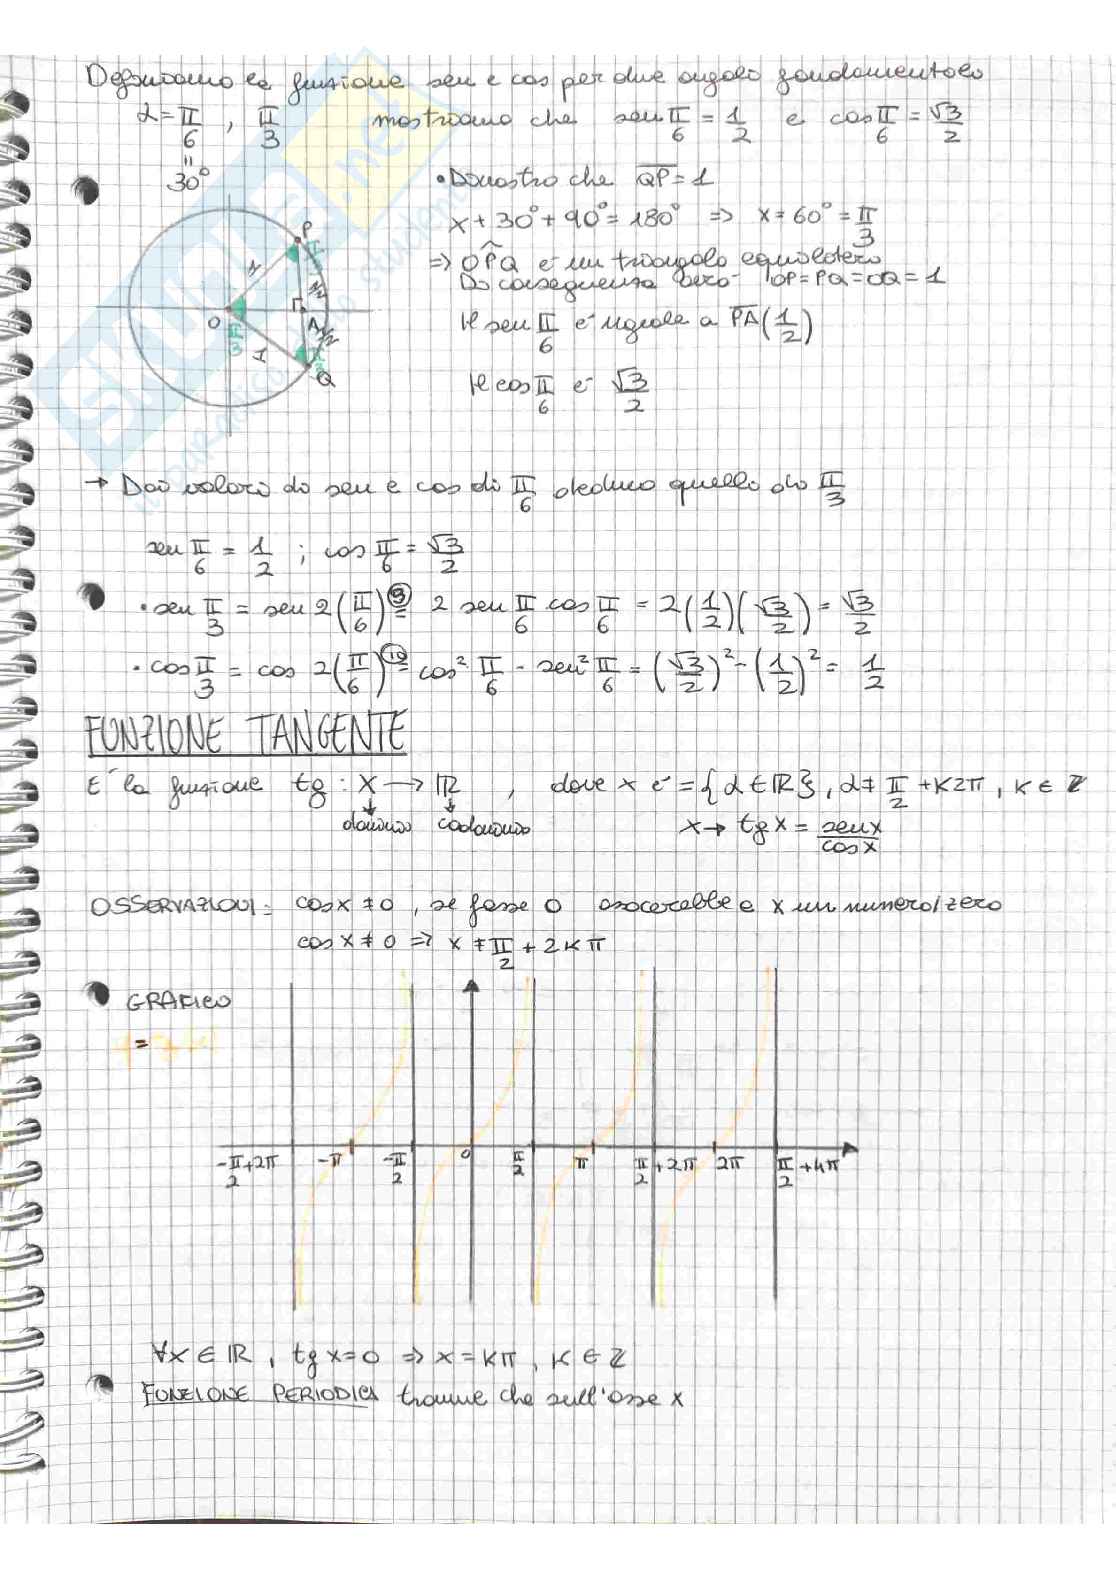 Definiamo la funzione sen e cos per due angoli fondamentali
α = π/6 , π/3 mostriamo che sen π/6 = 1/2 e cos π/6 = √3/2
" 30°
• Dimostro che QP = 1
x + 30° + 90° = 180° ⇒ x = 60° = π/3
⇒ OPQ è un triangolo equilatero
Di conseguenza avrò OP = PQ = OQ = 1
Il sen π/6 è uguale a PA (1/2)
Il cos π/6 è √3/2
P
1
1/2
O
A
π/3
1
1/2
Q
→ Dai valori di sen e cos di π/6 deduco quello di π/3
sen π/6 = 1/2 ; cos π/6 = √3/2
• sen π/3 = sen 2(π/6) ⑨= 2 sen π/6 cos π/6 = 2(1/2)(√3/2) = √3/2
• cos π/3 = cos 2(π/6) ⑩= cos² π/6 - sen² π/6 = (√3/2)² - (1/2)² = 1/2
FUNZIONE TANGENTE
E' la funzione tg : X → ℝ , dove x è = {α ∈ ℝ}, α ≠ π/2 + K2π , K ∈ ℤ
dominio codominio x → tg x = sen x/cos x
OSSERVAZIONI: cos x ≠ 0 , se fosse 0 assocerebbe a x un numero/zero
cos x ≠ 0 ⇒ x ≠ π/2 + 2Kπ
GRAFICO
-π/2+2π -π -π/2 0 π/2 π π/2+2π 2π π/2+4π
∀x ∈ ℝ , tg x = 0 ⇒ x = Kπ , K ∈ ℤ
FUNZIONE PERIODICA tranne che sull'asse x
SKUOLA.net